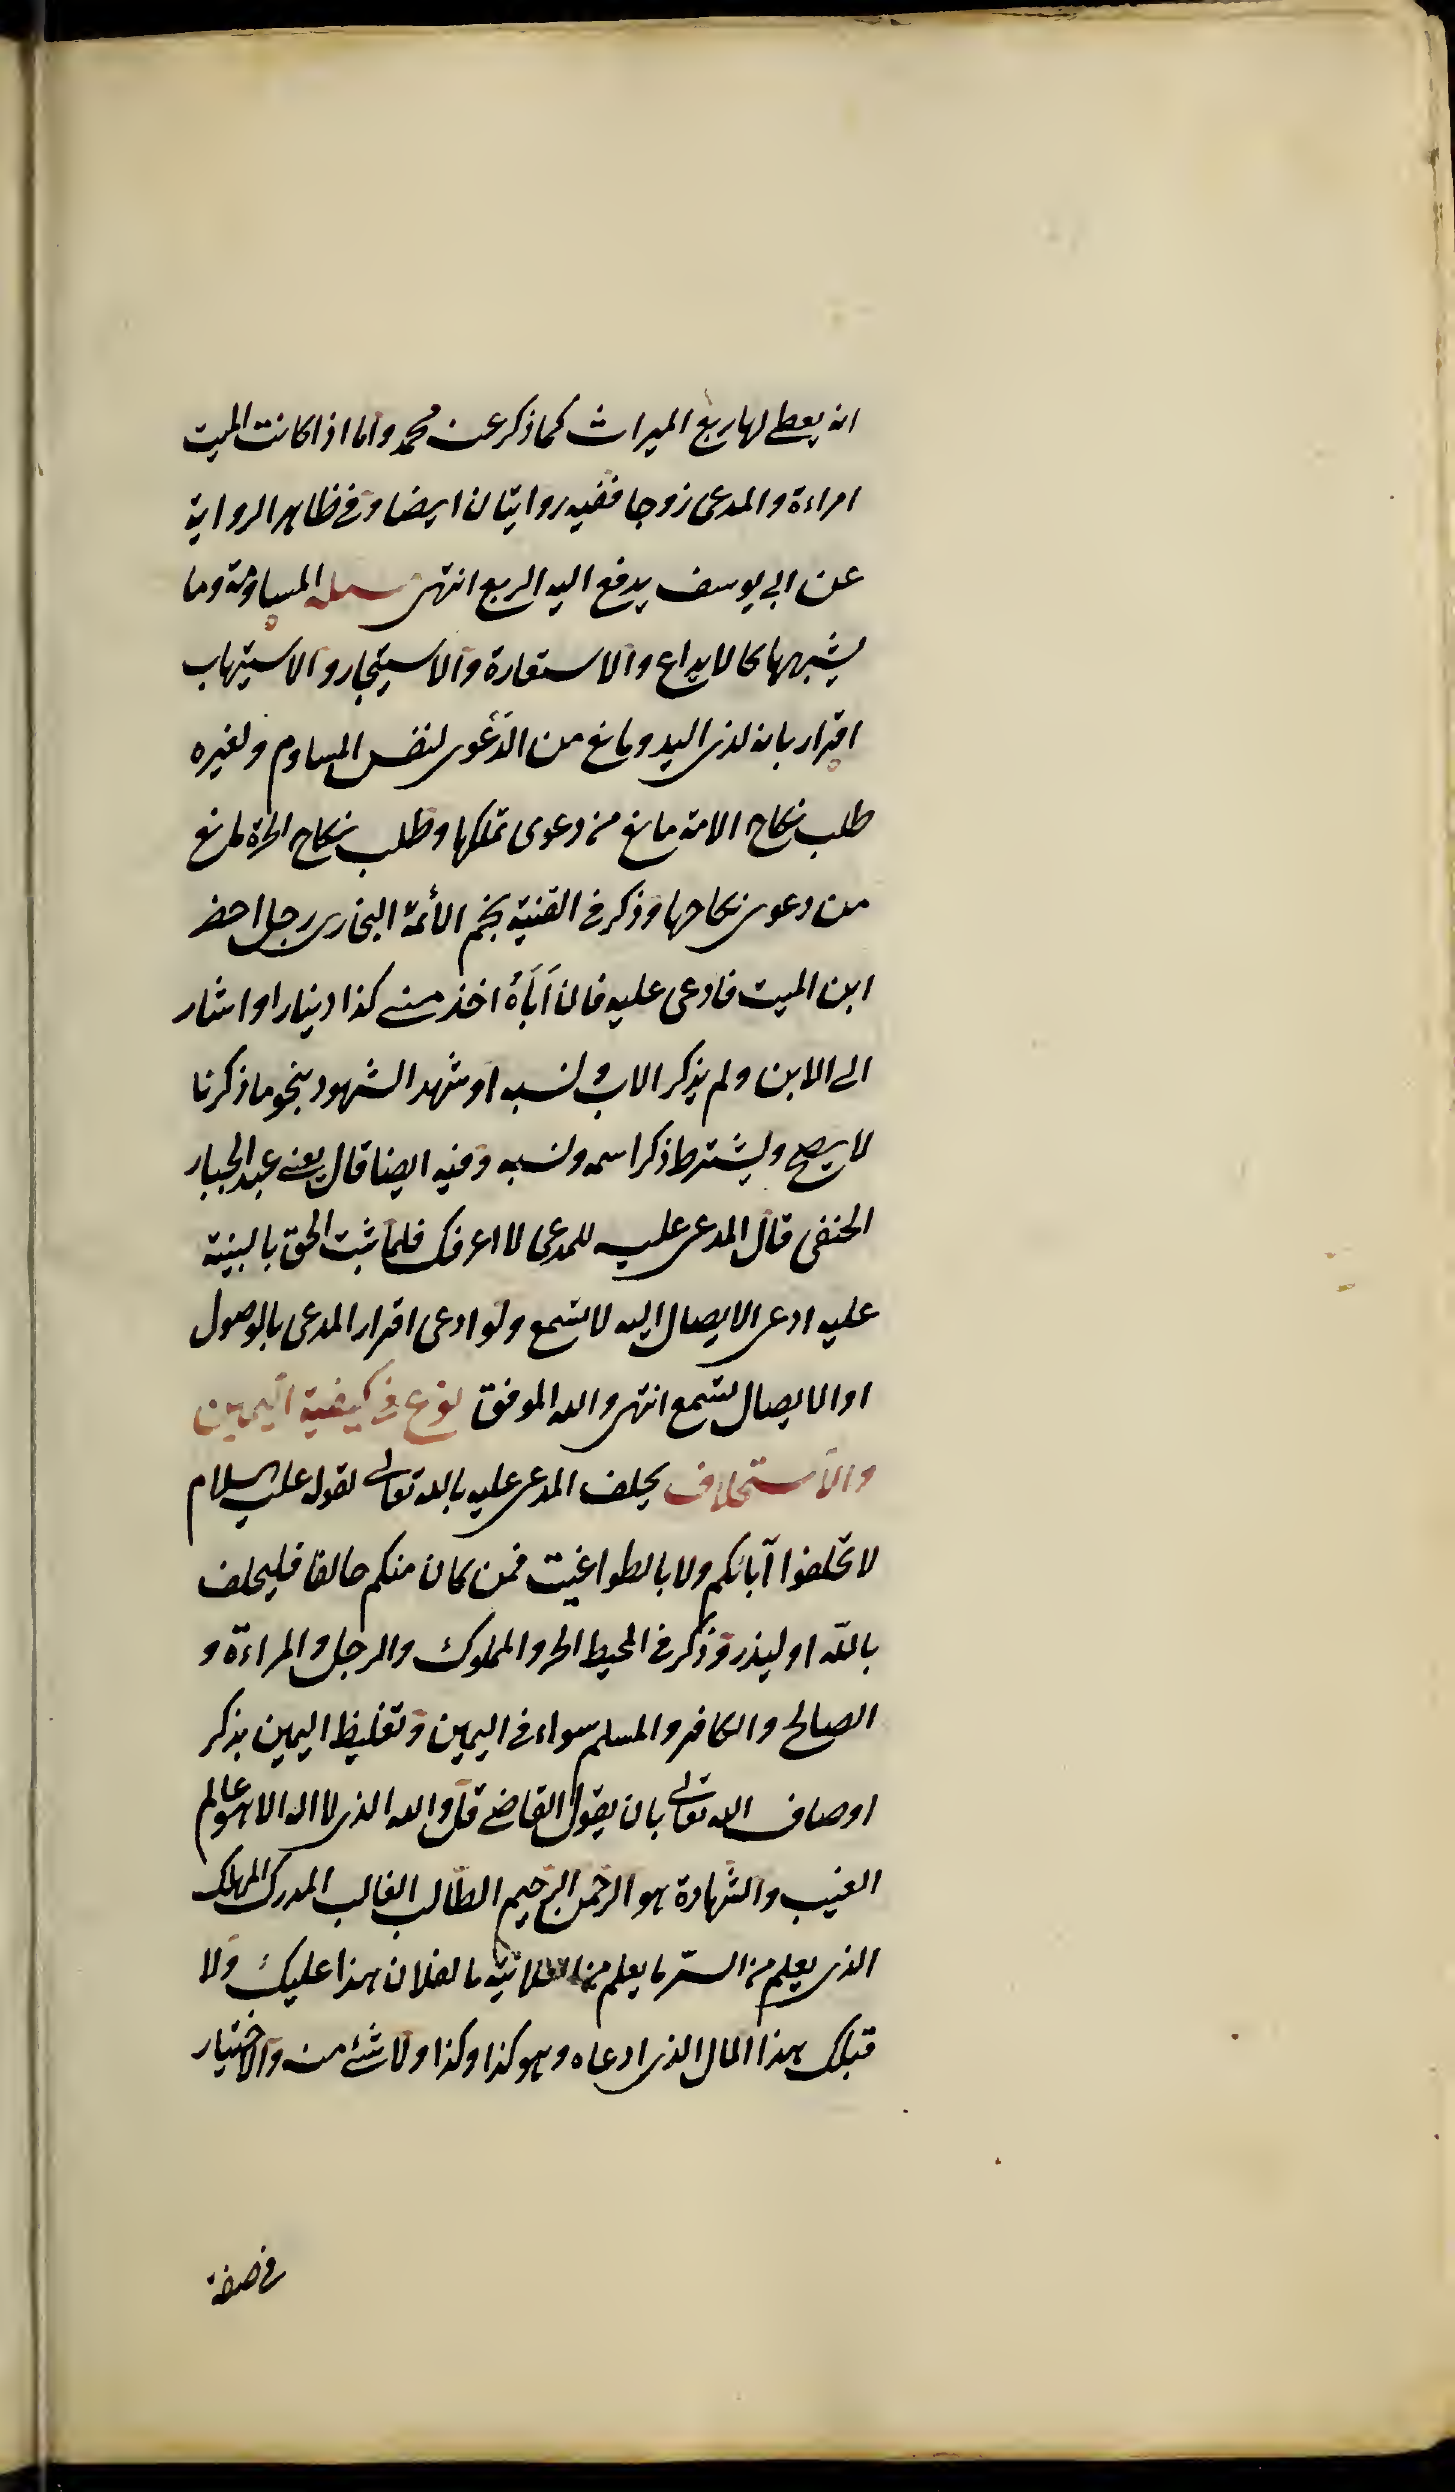 انه يعطى لها ربع الميراث كما ذكر عن محمد واما اذا كانت الميت
امراءة والمدعى زوجا ففيه روايتان ايضا وفى ظاهر الرواية
عن ابى يوسف يدفع اليه الربع انتهى مسئلة المساومة وما
يشبهها كالايداع والاستعارة والاستيجار والاستيهاب
اقرار بانه لذى اليد ومانع من الدعوى لنفس المساوم ولغيره
طلب نكاح الامة مانع من دعوى تملكها وطلب نكاح الحرة مانع
من دعوى نكاحها وذكر فى القنية نجم الأئمة البخارى رجل احضر
ابن الميت فادعى عليه فان أَبَاهُ اخذ منى كذا دينارا واشار
الى الابن ولم يذكر الاب ونسبه او شهد الشهود بنحو ما ذكرنا
لا يصح ويشترط ذكر اسمه ونسبه وفيه ايضا قال يعنى عبد الجبار
الحنفى قال المدعى عليه للمدعى لا اعرفك فلما ثبت الحق بالبينة
عليه ادعى الايصال اليه لا تسمع ولو ادعى اقرار المدعى بالوصول
او الايصال تسمع انتهى والله الموفق نوع فى كيفية اليمين
والاستحلاف يحلف المدعى عليه بالله تعالى لقوله عليه السلام
لا تحلفوا آبائكم ولا بالطواغيت فمن كان منكم حالفا فليحلف
بالله او ليذر وذكر فى المحيط الحر والمملوك والرجل والمراءة و
الصالح والكافر والمسلم سواء فى اليمين وتغليظ اليمين بذكر
اوصاف الله تعالى بان يقول القاضى قل والله الذى لا اله الا هو عالم
الغيب والشهادة هو الرحمن الرحيم الطالب الغالب المدرك المهلك
الذى يعلم من السر ما يعلم من العلانية ما لفلان هذا عليك ولا
قبلك هذا المال الذى ادعاه وهو كذا وكذا ولا شئ منه والاختيار
فى صفة